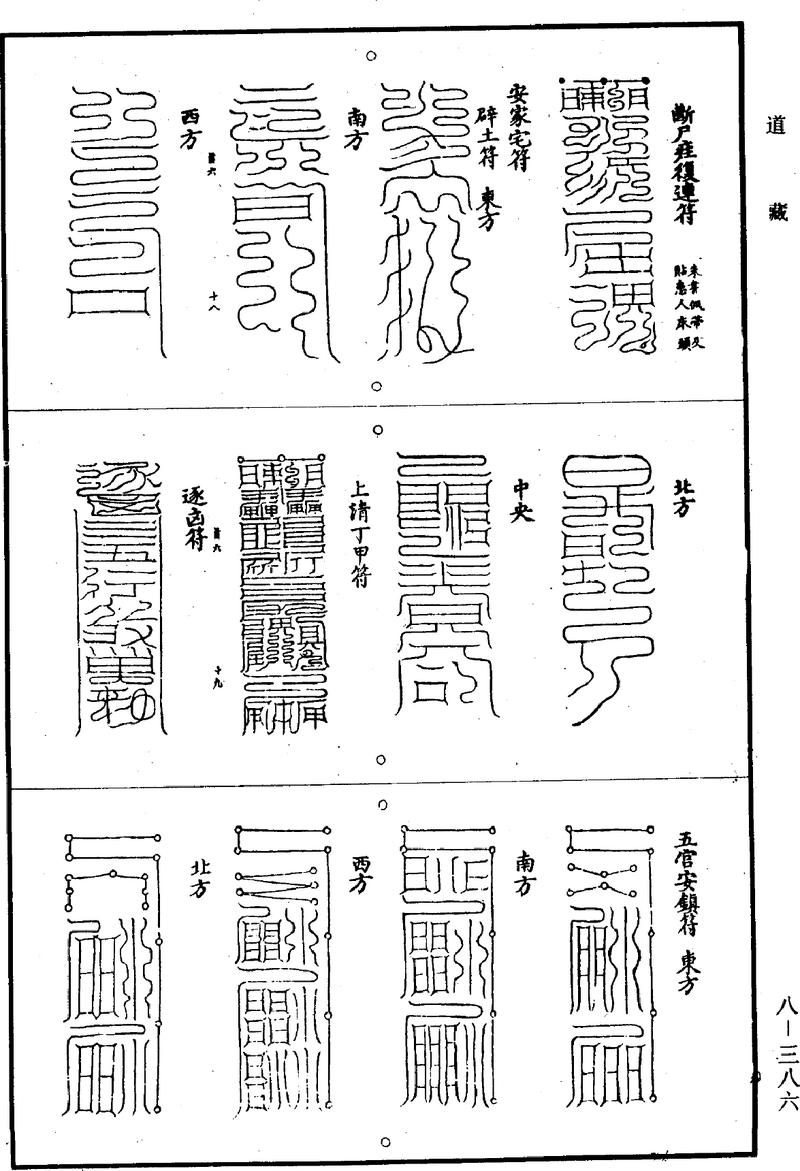 道藏
斷尸疰復連符
朱書佩帶又
貼患人床頭
安家宅符
辟土符 東方
南方
西方
十八
北方
中央
上清丁甲符
逐凶符
十九
五官安鎮符 東方
南方
西方
北方
八－三八六